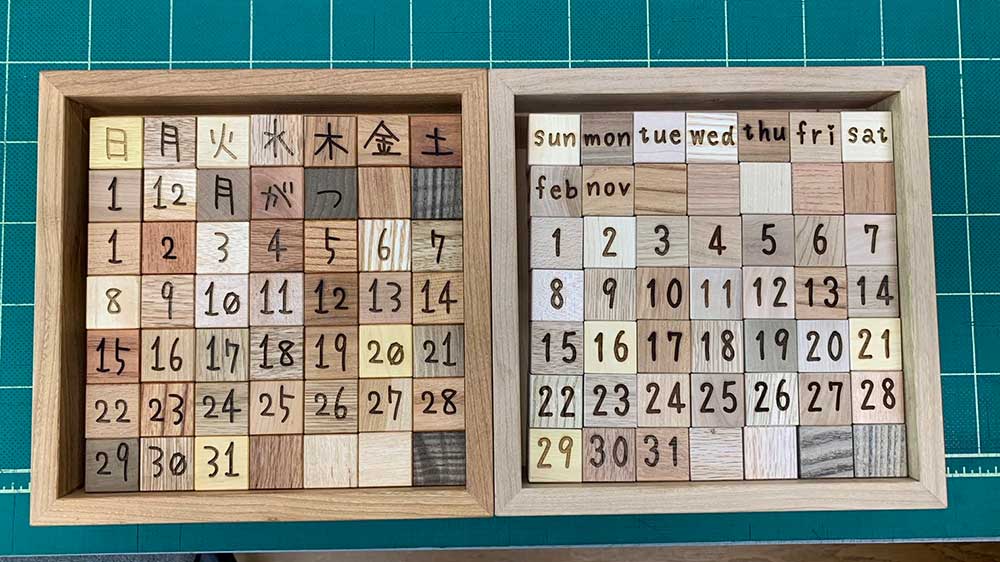 日 月 火 水 木 金 土
1 12 月 が つ
1 2 3 4 5 6 7
8 9 10 11 12 13 14
15 16 17 18 19 20 21
22 23 24 25 26 27 28
29 30 31
sun mon tue wed thu fri sat
feb nov
1 2 3 4 5 6 7
8 9 10 11 12 13 14
15 16 17 18 19 20 21
22 23 24 25 26 27 28
29 30 31